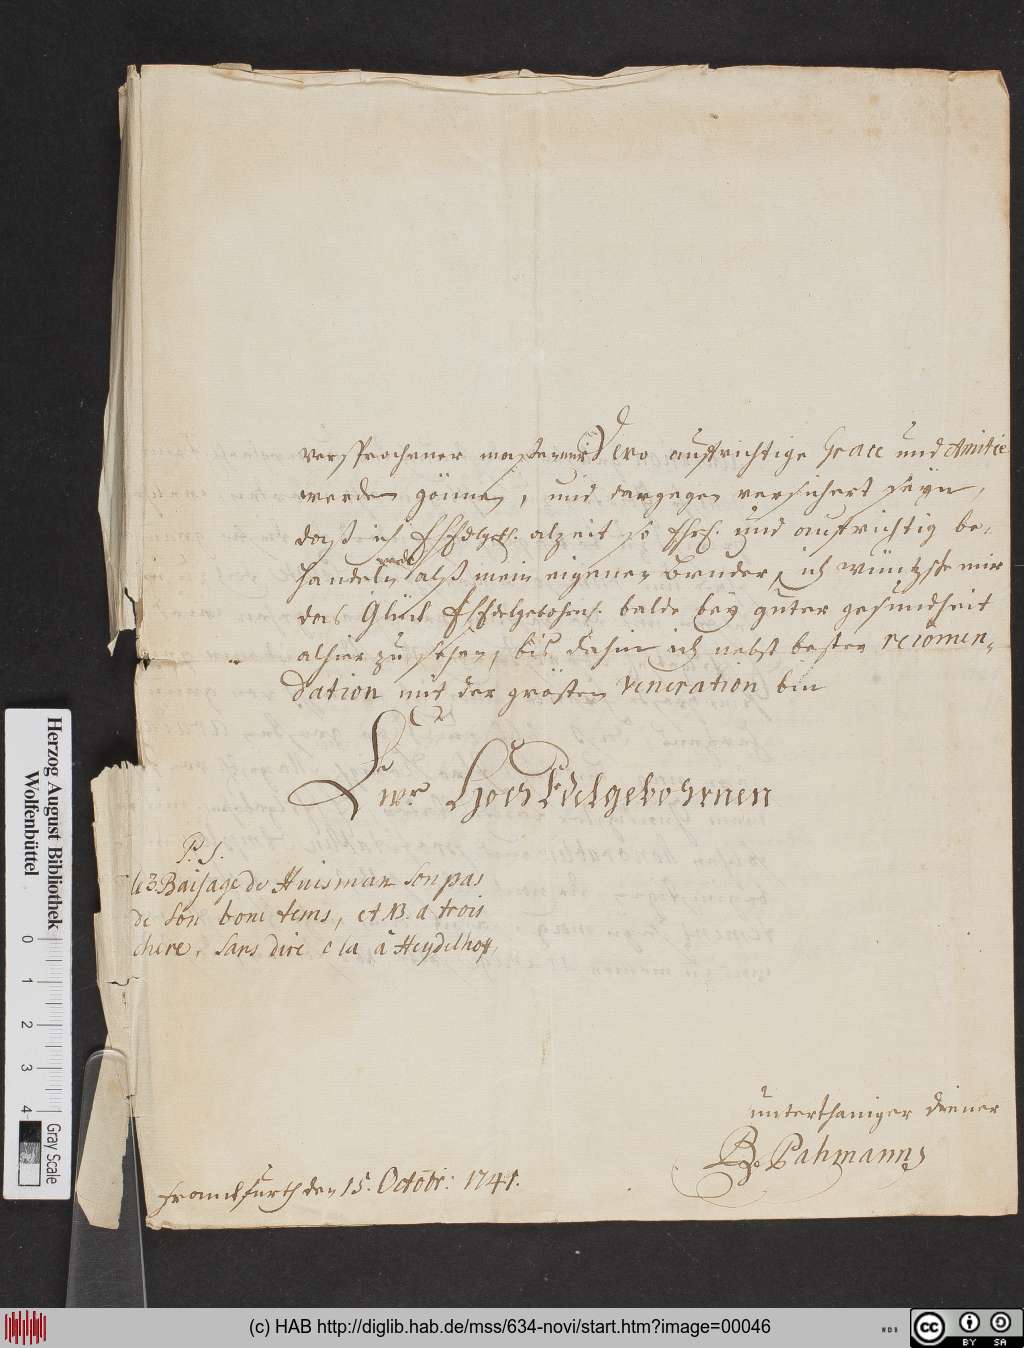 versprochener maßen mir Dero aufrichtige Grace und Amitie
werden gönnen, und dargegen versichert seyn,
daß ich HhEdlgeb. alzeit so Ehrl. und aufrichtig be-
handeln werde alß mein eigenen Bruder, ich wüntzste mir
das Glück HhEdelgebohrnh. balde bey guter gesundheit
alhier zu sehen, bis dahin ich nebst bester recomen-
dation mit der grösten Veneration bin
Ewr HochEdelgebohrnen
P. S.
le 3 Baisage de Huisman son pas
de son bone tems, et NB. a trois
chere, sans dire cela à Heydelhof.
unterthaniger diener
B. Pahmann
Franckfurth den 15. Octobr: 1741.
Herzog August Bibliothek
Wolfenbüttel
0 1 2 3 4
Gray Scale
(c) HAB http://diglib.hab.de/mss/634-novi/start.htm?image=00046
cc BY SA